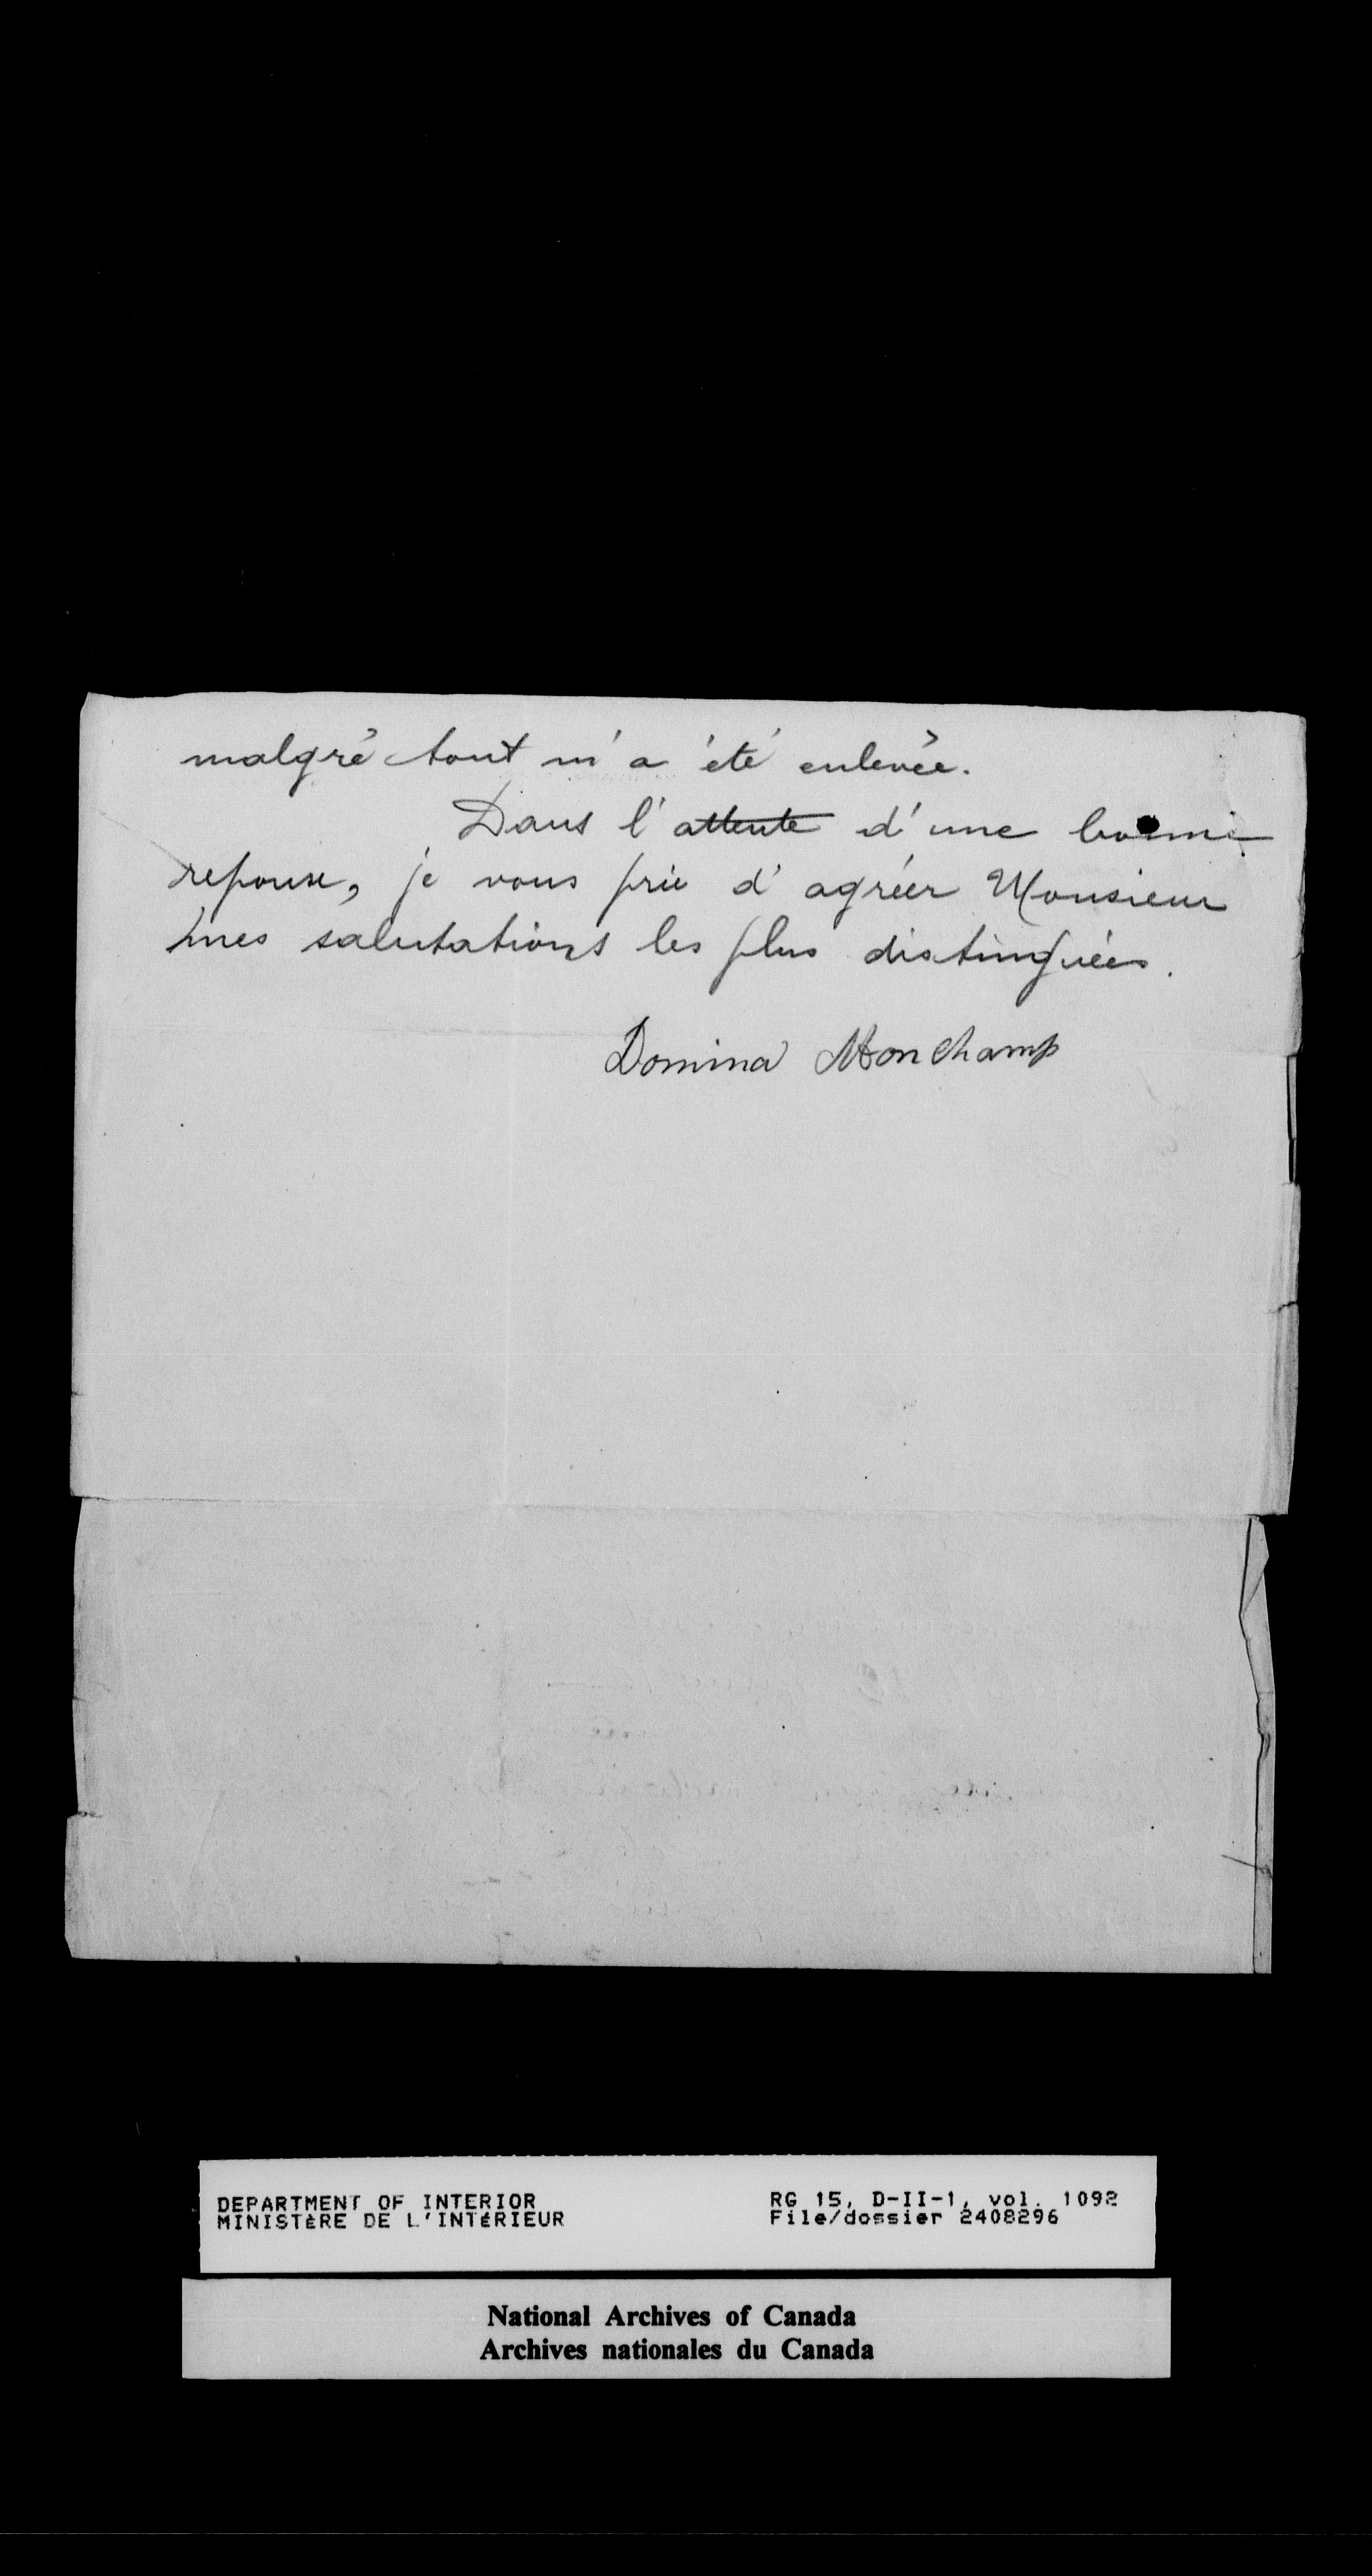 malgré tout m'a été enlevée.
Dans l'attente d'une bonne
reponse, je vous prie d'agréer Monsieur
mes salutations les plus distinguées.
Domina Monchamp
DEPARTMENT OF INTERIOR
MINISTÈRE DE L'INTÉRIEUR
RG 15, D-II-1, vol. 1092
File/dossier 2408296
National Archives of Canada
Archives nationales du Canada